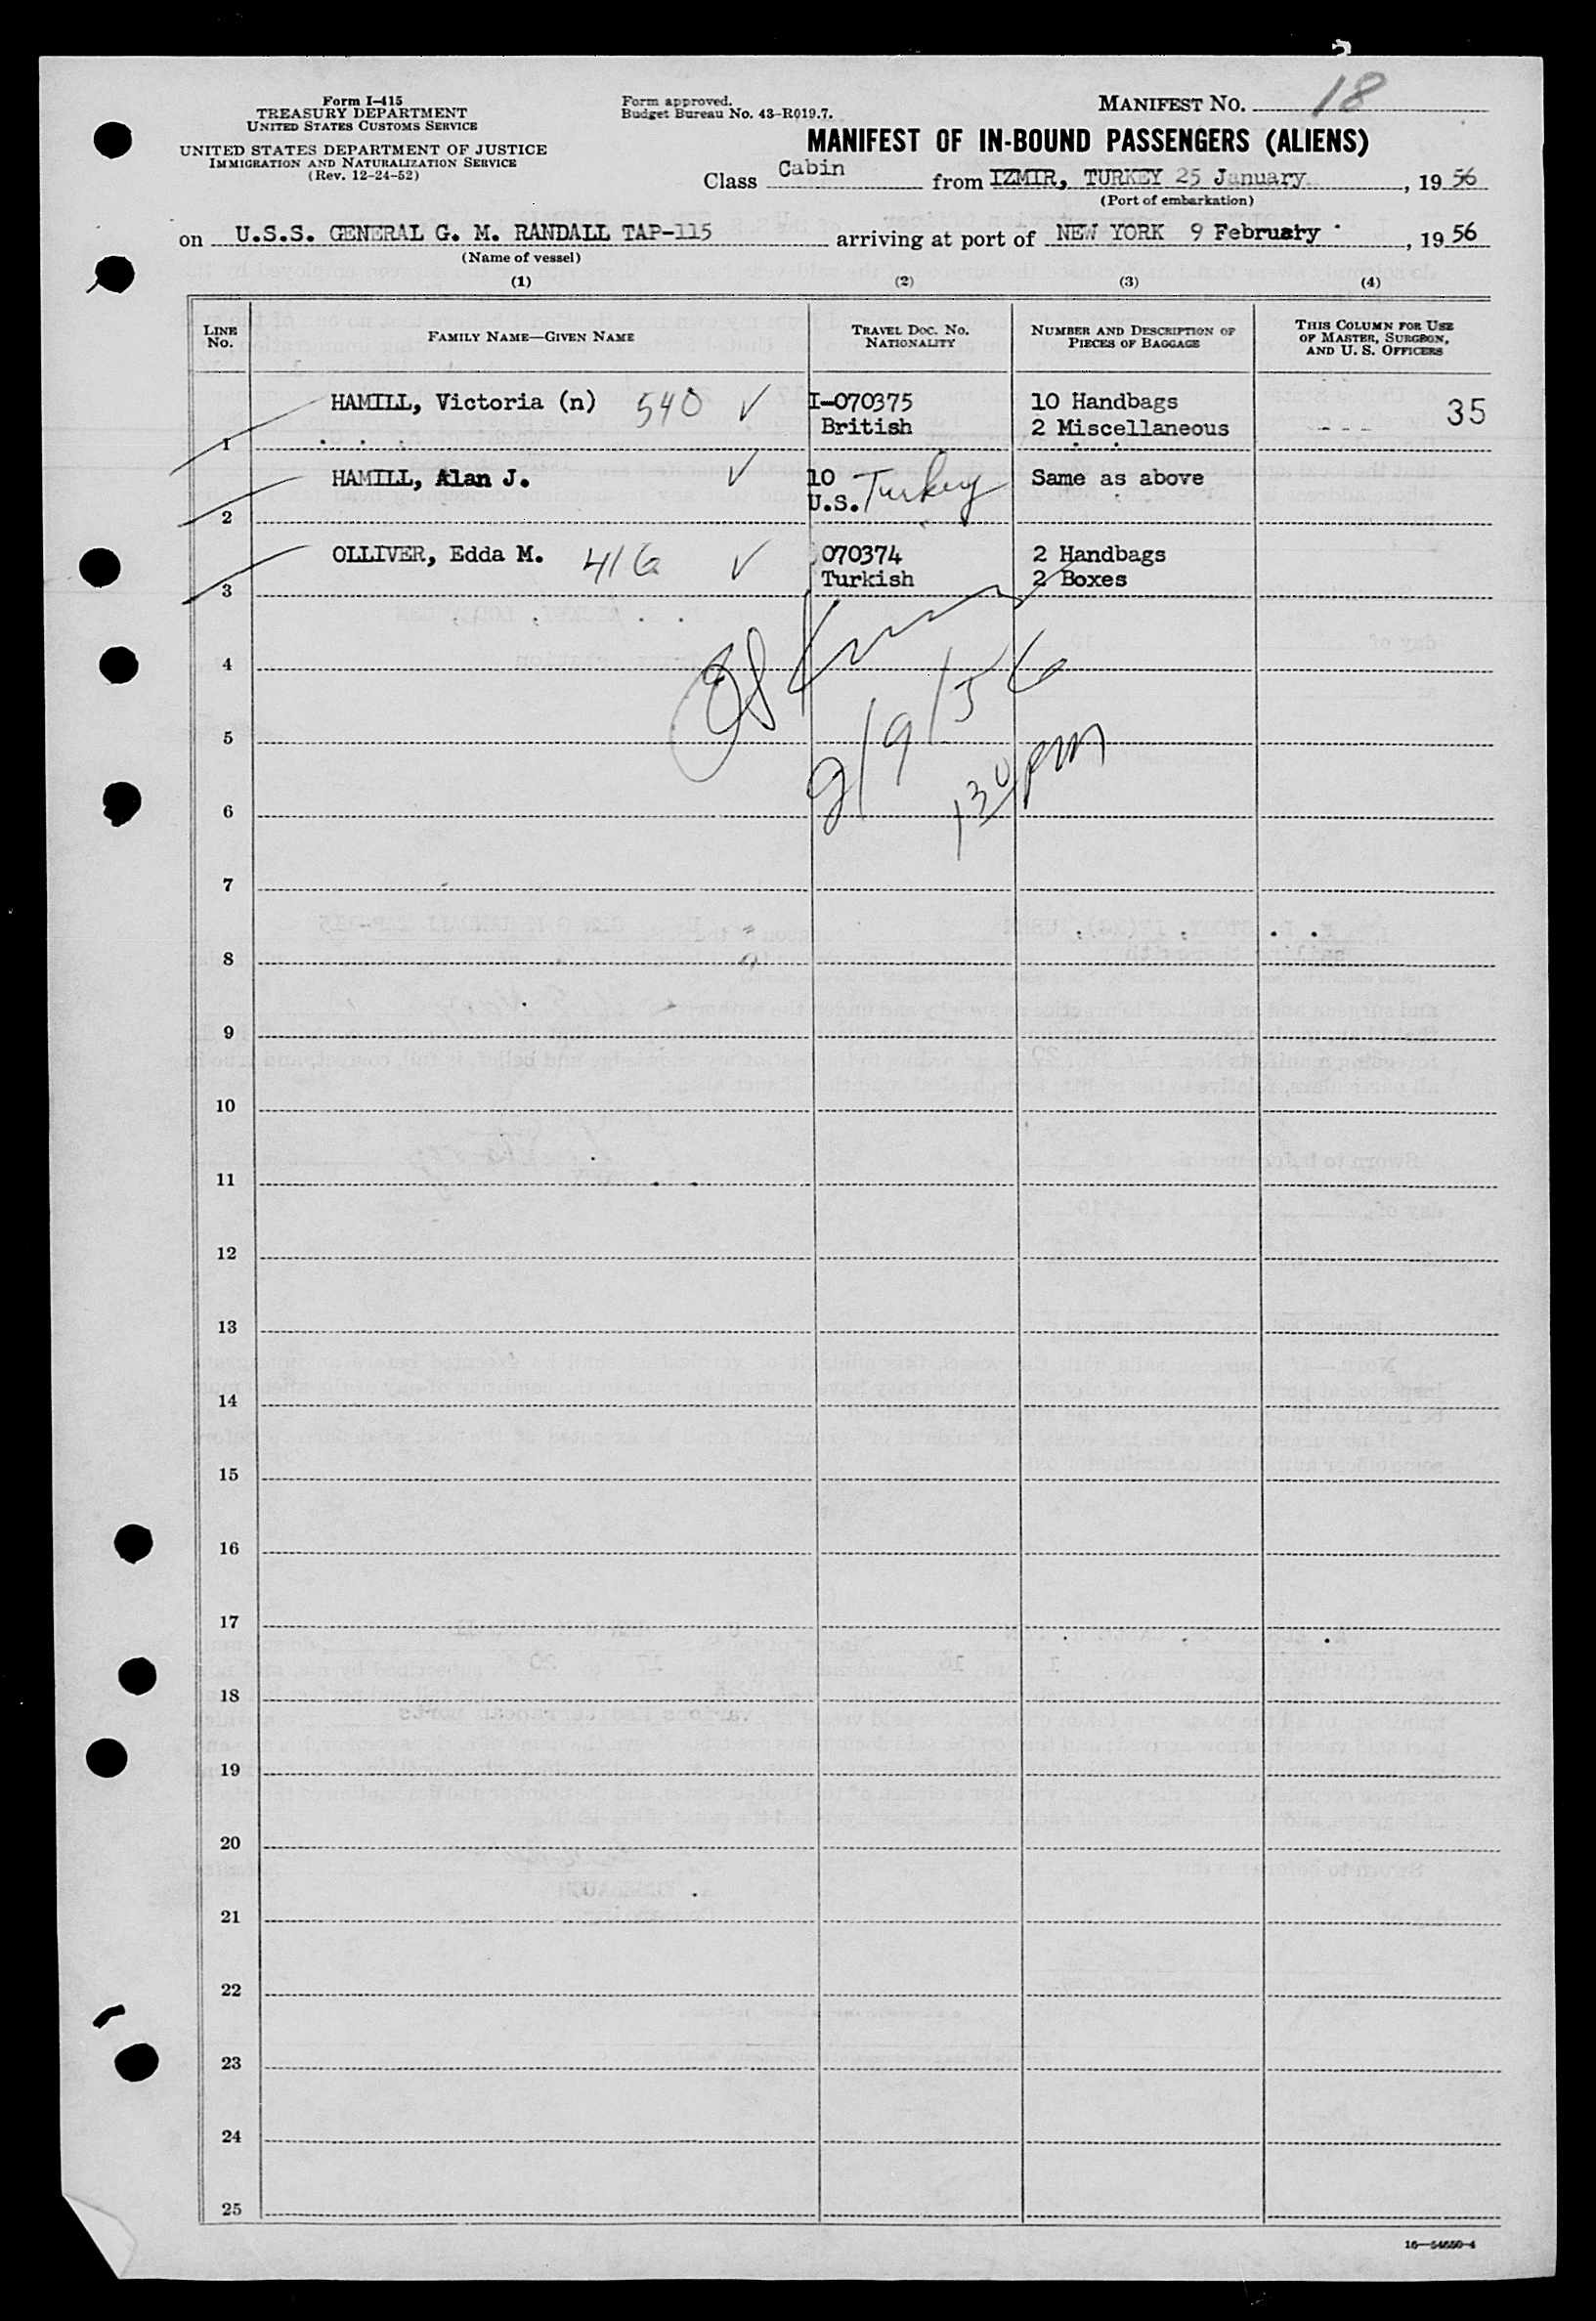 Form I-415
TREASURY DEPARTMENT
UNITED STATES CUSTOMS SERVICE
UNITED STATES DEPARTMENT OF JUSTICE
IMMIGRATION AND NATURALIZATION SERVICE
(Rev. 12-24-52)
Form approved.
Budget Bureau No. 43-R019.7.
MANIFEST NO. 18
MANIFEST OF IN-BOUND PASSENGERS (ALIENS)
Class Cabin from IZMIR, TURKEY 25 January, 1956
(Port of embarkation)
on U.S.S. GENERAL G. M. RANDALL TAP-115 arriving at port of NEW YORK 9 February, 1956
(Name of vessel)
(1) (2) (3) (4)
LINE NO. FAMILY NAME—GIVEN NAME TRAVEL DOC. NO. NATIONALITY NUMBER AND DESCRIPTION OF PIECES OF BAGGAGE THIS COLUMN FOR USE OF MASTER, SURGEON, AND U. S. OFFICERS
HAMILL, Victoria (n) 540 ✓ I-070375 10 Handbags 35
1 British 2 Miscellaneous
HAMILL, Alan J. ✓ 10 Turkey Same as above
2 U.S.
OLLIVER, Edda M. 416 ✓ 070374 2 Handbags
3 Turkish 2 Boxes
4
5
2/9/56
6
130 pm
7
8
9
10
11
12
13
14
15
16
17
18
19
20
21
22
23
24
25
16—54650-4